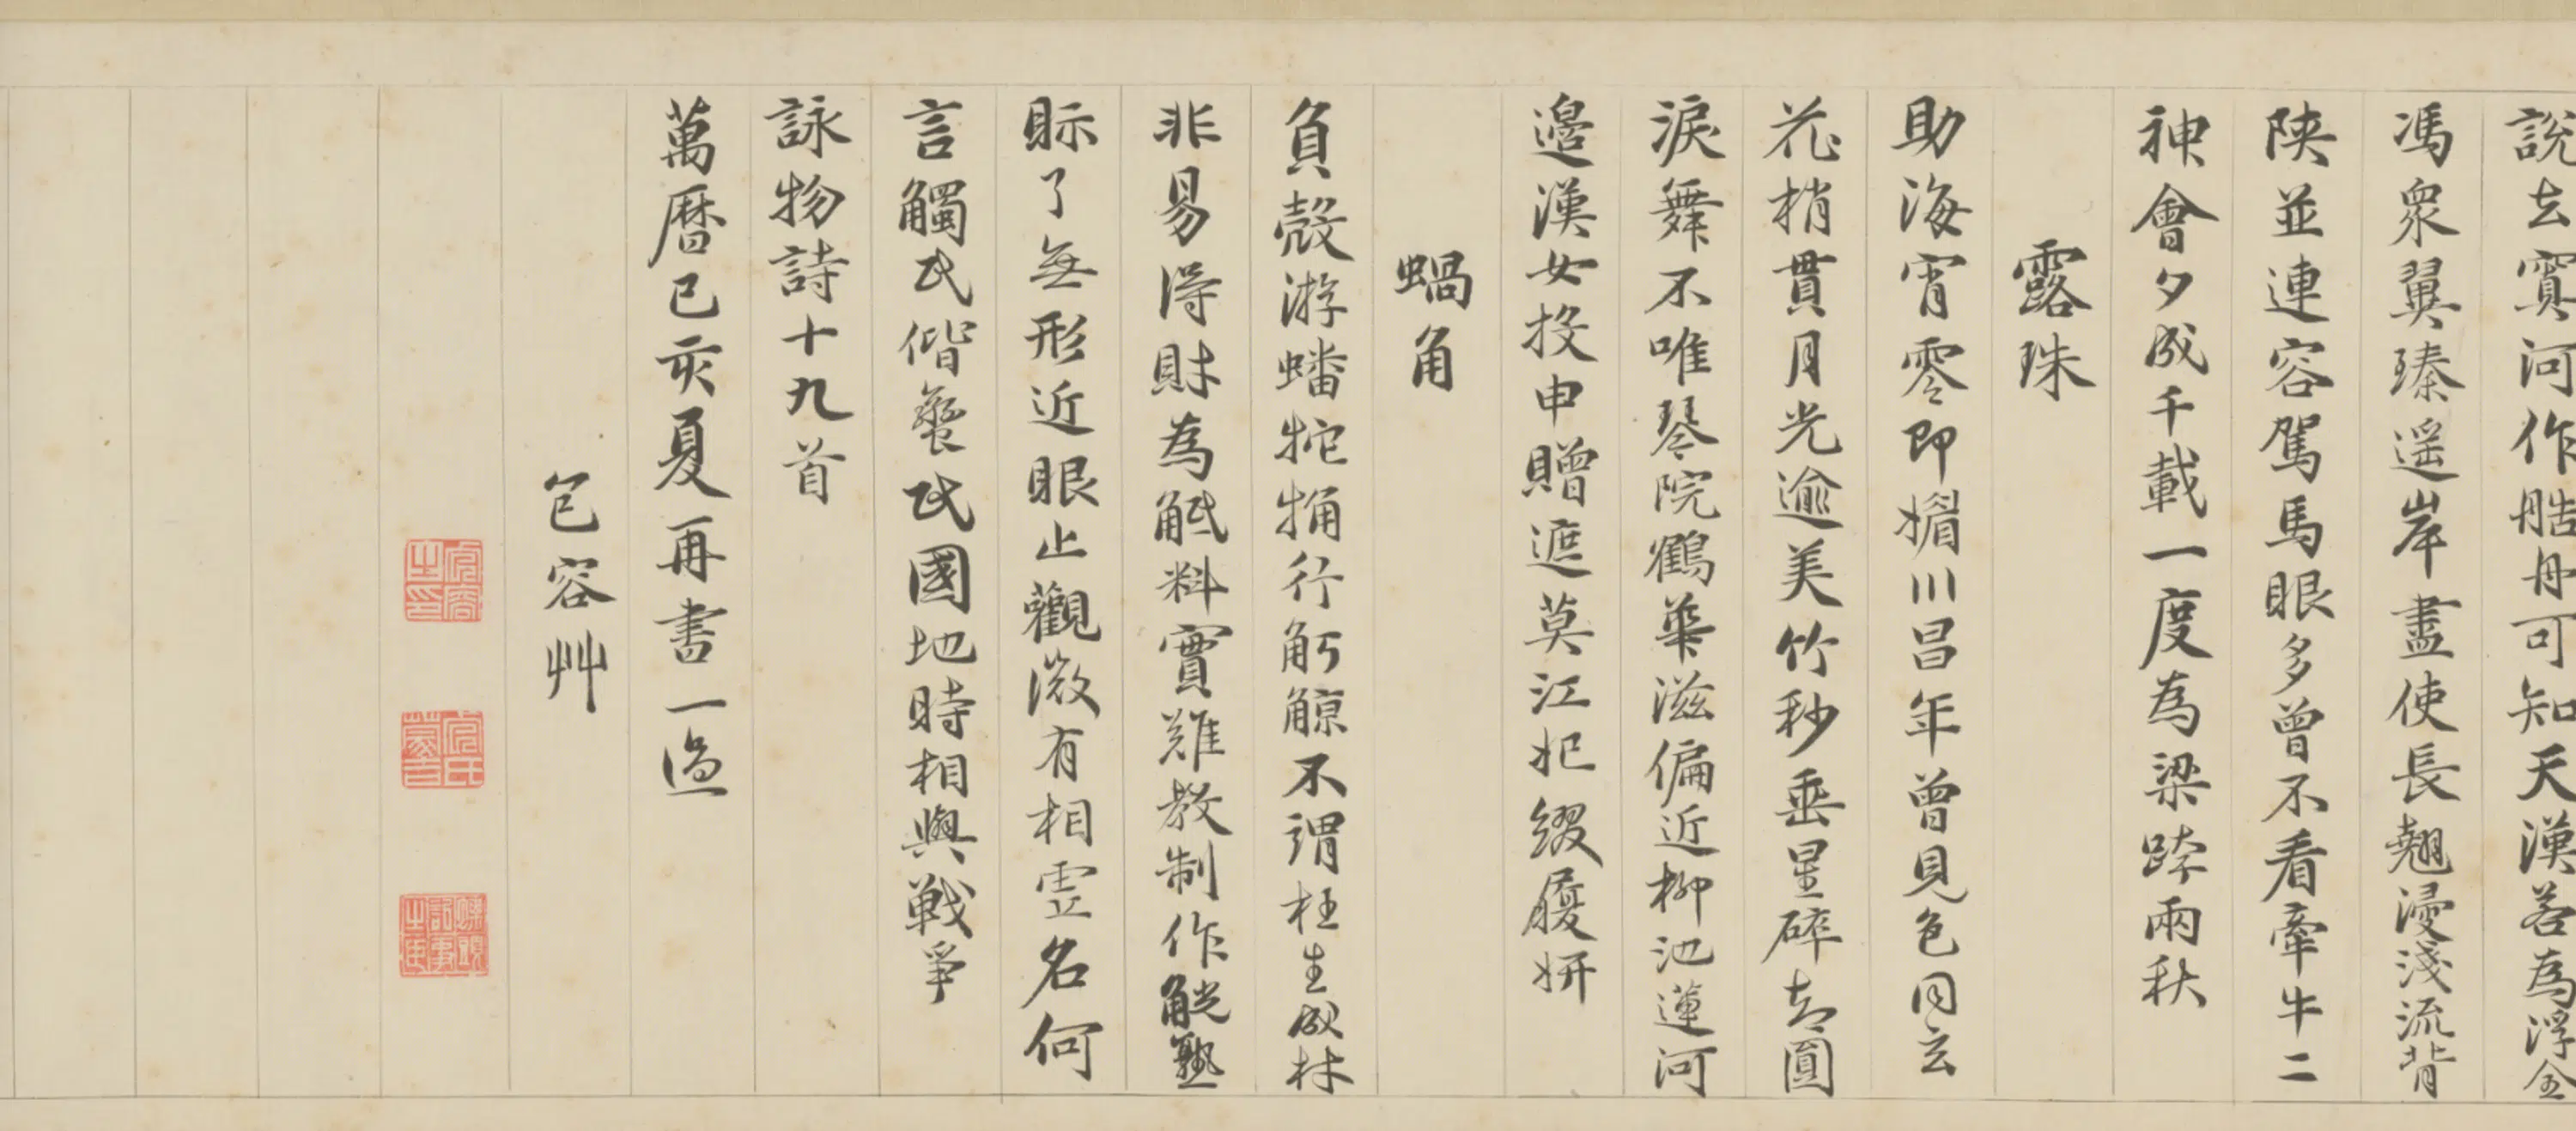 說去實河作艁舟可知天漢若為浮全
馮衆翼臻遥岸盡使長翹浸淺流背
陝並連容駕馬眼多曾不看牽牛二
神會夕成千載一度為梁跨兩秋
露珠
助海宵零即媚川昌年曾見色同玄
花梢貫月光逾美竹秒垂星碎却圓
淚舞不唯琴院鶴華滋偏近柳池蓮河
邊漢女投申贈遮莫江妃綴履妍
蝸角
負殼游蟠牠牅行觓䚘不謂枉生成材
非易得財為觝料實難教制作觥熟
眎了無形近眼止觀微有相虛名何
言觸氏偕蠻氏國地時相與戰爭
詠物詩十九首
萬曆己亥夏再書一過
包容艸